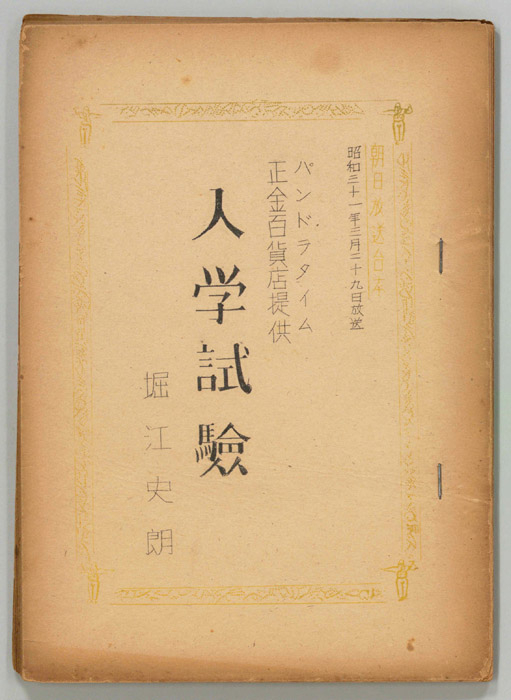 朝日放送台本
昭和三十一年三月二十九日放送
パンドラタイム
正金百貨店提供
入学試験
堀江史朗